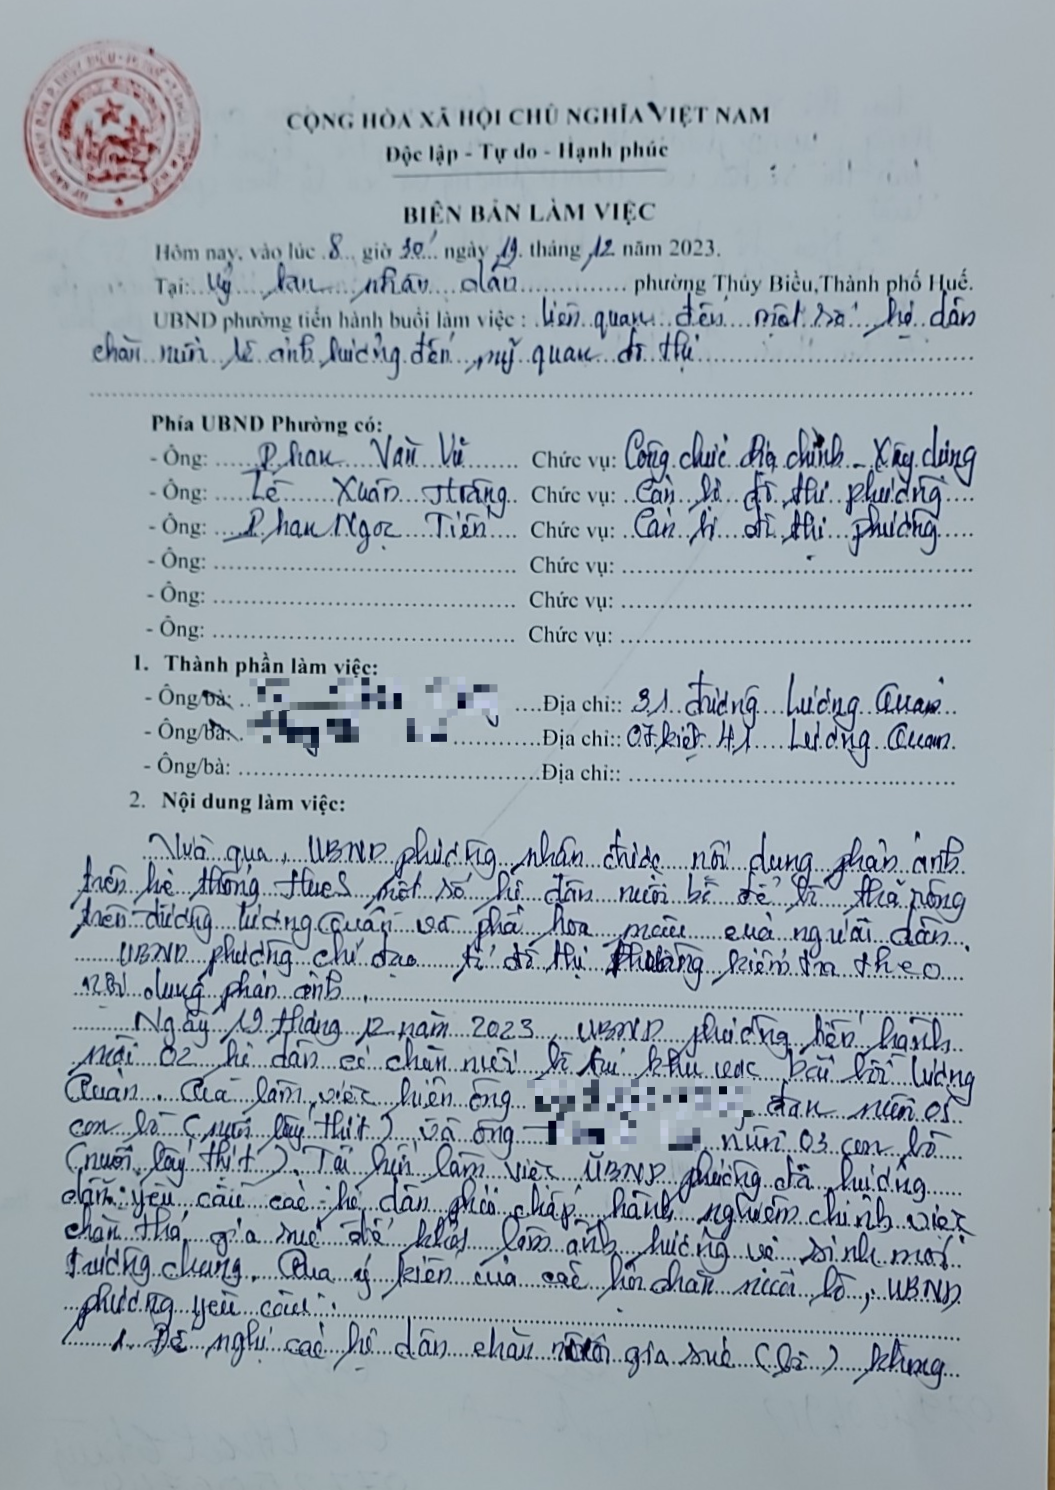 CỘNG HÒA XÃ HỘI CHỦ NGHĨA VIỆT NAM
Độc lập - Tự do - Hạnh phúc
BIÊN BẢN LÀM VIỆC
Hôm nay, vào lúc 8 giờ 30' ngày 19 tháng 12 năm 2023.
Tại: Uỷ ban nhân dân phường Thủy Biều,Thành phố Huế.
UBND phường tiến hành buổi làm việc : liên quan đến một số hộ dân
chăn nuôi bò ảnh hưởng đến mỹ quan đô thị
Phía UBND Phường có:
- Ông: Phan Văn Vũ Chức vụ: Công chức Địa chính - Xây dựng
- Ông: Lê Xuân Chức vụ: Cán bộ đô thị phường
- Ông: Phan Ngọc Tiến Chức vụ: Cán bộ đô thị phường
- Ông: Chức vụ:
- Ông: Chức vụ:
- Ông: Chức vụ:
1. Thành phần làm việc:
- Ông/bà: Địa chỉ:: 31 đường Lương Quán
- Ông/bà: Địa chỉ:: 07 kiệt 41 Lương Quán
- Ông/bà: Địa chỉ::
2. Nội dung làm việc:
Vừa qua, UBND phường nhận được nội dung phản ánh
trên hệ thống HueS một số hộ dân nuôi bê để bò thả rông
trên đường Lương Quán và phá hoa màu của người dân.
UBND phường chỉ đạo tổ đô thị phường kiểm tra theo
nội dung phản ánh.
Ngày 19 tháng 12 năm 2023, UBND phường tiến hành
mời 02 hộ dân có chăn nuôi bò tại khu vực bãi bồi Lương
Quán. Qua làm việc hiện ông đang nuôi 05
con bò (nuôi lấy thịt), và ông nuôi 03 con bò
(nuôi lấy thịt). Tại buổi làm việc UBND phường đã hướng
dẫn yêu cầu các hộ dân phải chấp hành nghiêm chỉnh việc
chăn thả gia súc để khỏi làm ảnh hưởng vệ sinh môi
trường chung. Qua ý kiến của các hộ chăn nuôi bò, UBND
phường yêu cầu:
1. Đề nghị các hộ dân chăn nuôi gia súc (bò) không